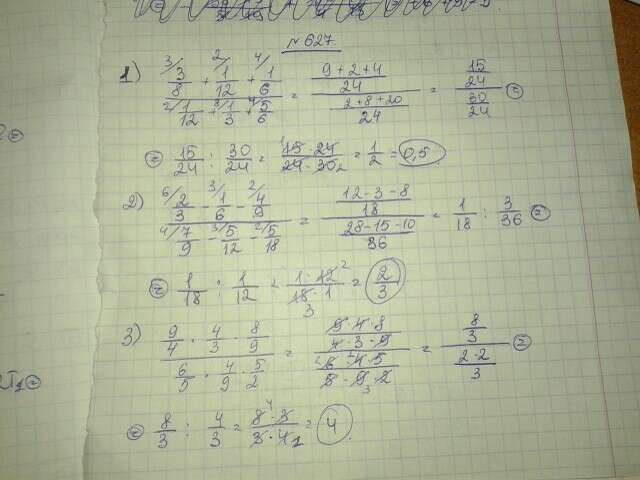 № 627.
1) (³/3/8 + ²/1/12 + ⁴/1/6) / (²/1/12 + ⁸/1/3 + ⁴/5/6) = ((9+2+4)/24) / ((2+8+20)/24) = (15/24) / (30/24) =
= 15/24 : 30/24 = (15·24)/(24·30) = 1/2 = 0,5.
2) (⁶/2/3 - ³/1/6 - ²/4/9) / (⁴/7/9 - ³/5/12 - ²/5/18) = ((12-3-8)/18) / ((28-15-10)/36) = 1/18 : 3/36 =
= 1/18 : 1/12 = (1·12)/(18·1) = 2/3
3) (9/4 · 4/3 · 8/9) / (6/5 · 4/9 · 5/2) = ((9·4·8)/(4·3·9)) / ((6·4·5)/(5·9·2)) = (8/3) / ((2·2)/3) =
= 8/3 : 4/3 = (8·3)/(3·4) = 4